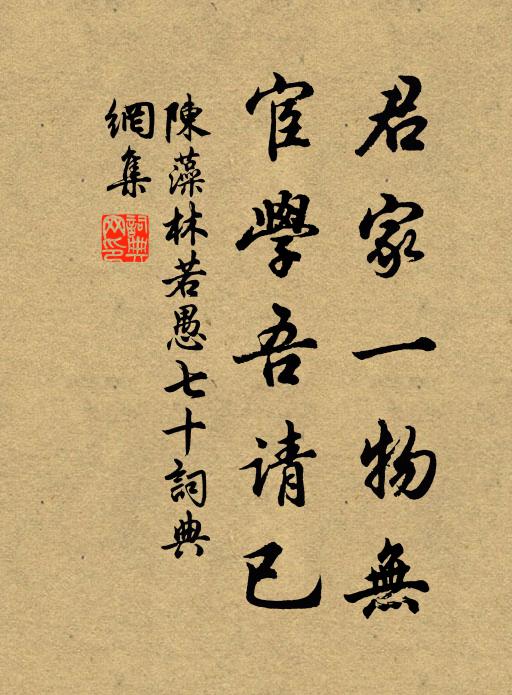 君家一物無
宦學吾请已
陳藻林若愚七十詞典
網集
詞典网印